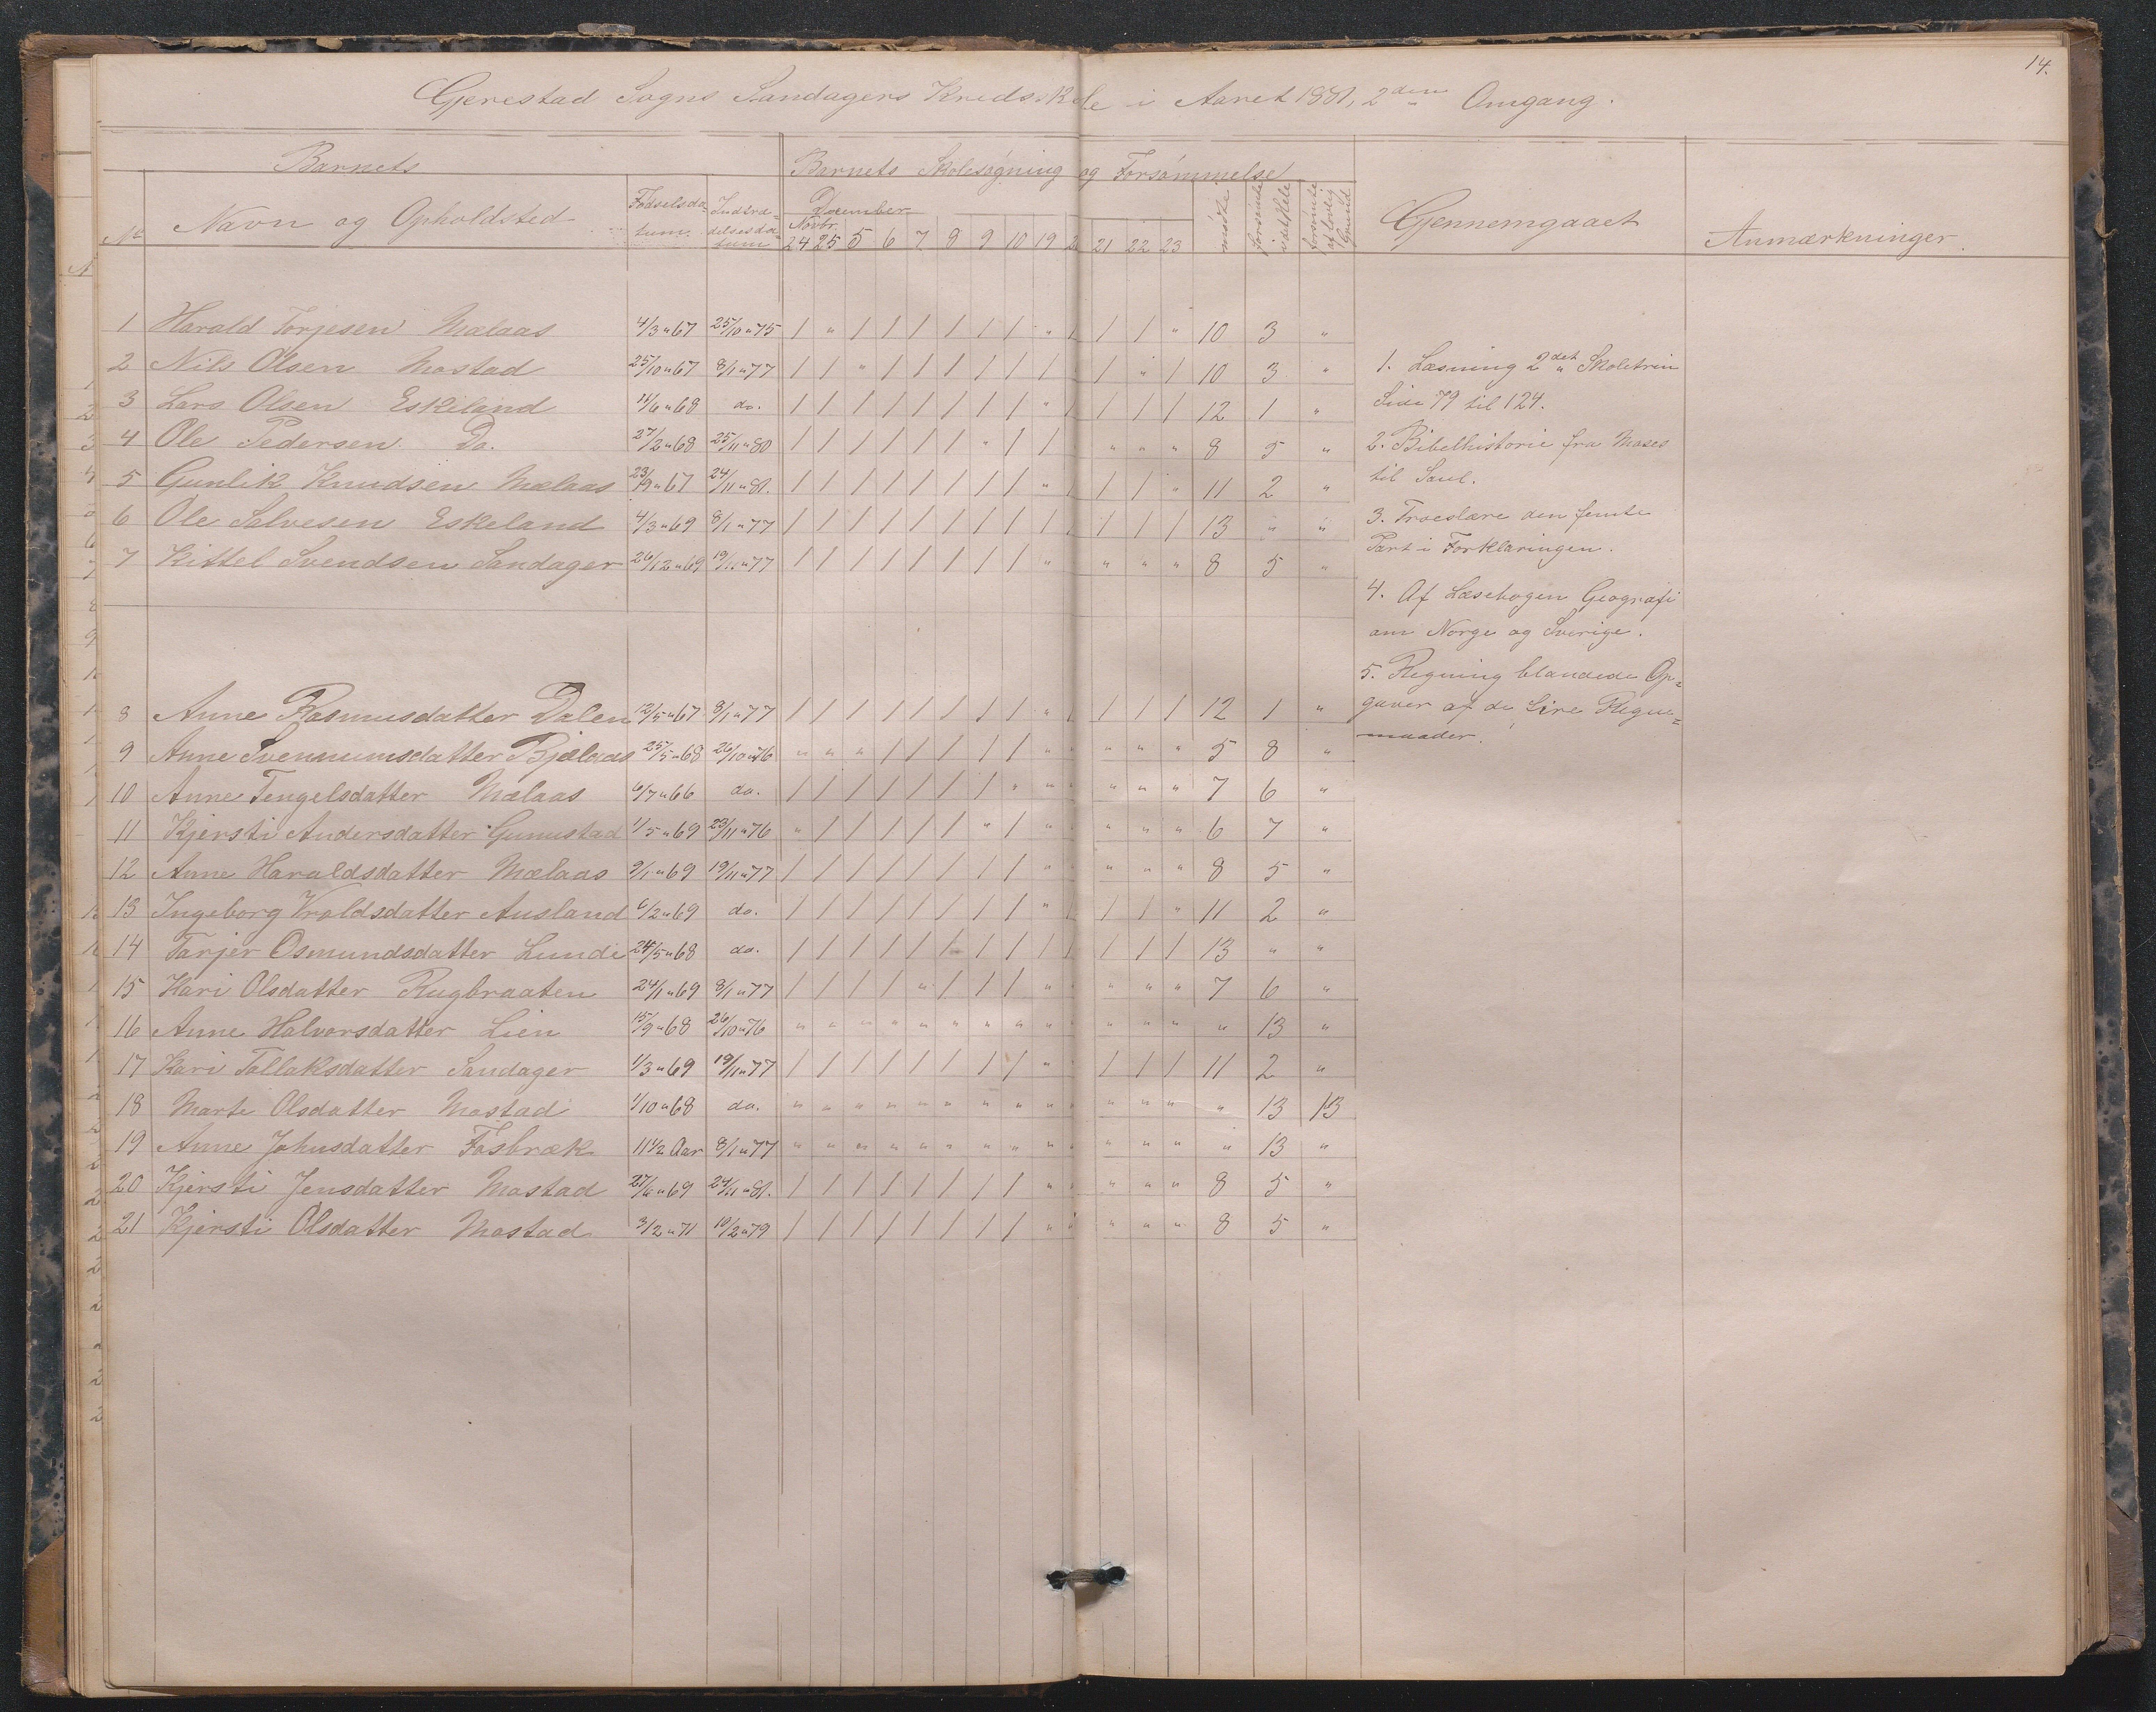 14.
Gjerestad Sogns Sandagers Kredsskole i Aaret 1881, 2den Omgang.
Barnets Barnets Skolesøgning og Forsømmelse
No Navn og Opholdsted Fødselsda=tum. Indtræ=delsesda=tum Novbr. December mødte forsømte i det Hele forsømte af lovlig Grund Gjennemgaaet Anmærkninger.
24 25 5 6 7 8 9 10 19 2 21 22 23
1 Harald Torjesen Mælaas 4/3 "67 25/10 "75 / " / / / / / / " / / / " 10 3 "
2 Nils Olsen Mostad 25/10 "67 8/1 "77 / / " / / / / / / / " / 10 3 "
3 Lars Olsen Eskiland 11/6 "68 do. / / / / / / / / " / / / / 12 1 "
4 Ole Pedersen Do. 27/2 "68 25/11 "80 / / / / / / " / / " " " 8 5 "
5 Gunlik Knudsen Mælaas 23/9 "67 24/11 "81. / / / / / / / / " / / / " 11 2 "
6 Ole Salvesen Eskeland 4/3 "69 8/1 "77 / / / / / / / / / / / / / 13 " "
7 Kittel Svendsen Sandager 26/12 "69 19/11 "77 / / / / / / / / " " " " 8 5 "
8 Anne Rasmusdatter Dalen 12/5 "67 8/1 "77 / / / / / / / / " / / / / 12 1 "
9 Anne Svennumsdatter Bjelaas 25/5 "68 26/10 "76 " " " / / / / / " " " " " 5 8 "
10 Anne Tengelsdatter Mælaas 6/7 "66 do. / / / / / / / " " " " " " 7 6 "
11 Kjersti Andersdatter Gunustad 1/5 "69 23/11 "76 " / / / / / " / " " " " 6 7 "
12 Anne Haraldsdatter Mælaas 9/1 "69 19/11 "77 / / / / / / / / " " " " " 8 5 "
13 Ingeborg Vroldsdatter Ausland 6/2 "69 do. / / / / / / / / " / / / " 11 2 "
14 Tarjer Osmundsdatter Lundi 24/5 "68 do. / / / / / / / / / / / / / 13 " "
15 Kari Olsdatter Rugbraaten 24/1 "69 8/1 "77 / / / / " / / / " " " " " 7 6 "
16 Anne Halvorsdatter Lien 15/9 "68 26/10 "76 " " " " " " " " " " " " " " 13 "
17 Kari Tallaksdatter Sandager 1/3 "69 19/11 "77 / / / / / / / / " " / / / 11 2 "
18 Marte Olsdatter Mostad 1/10 "68 do. " " " " " " " " " " " " " " 13 13
19 Anne Johnsdatter Fosbræk 11 1/2 Aar 8/1 "77 " " " " " " " " " " " " " " 13 "
20 Kjersti Jensdatter Mostad 27/6 "69 24/11 "81. / / / / / / / / " " " " " 8 5 "
21 Kjersti Olsdatter Mostad 3/2 "71 10/2 "79 / / / / / / / / " " " " " 8 5 "
1. Læsning 2det Skoletrin
Side 79 til 124.
2. Bibelhistorie fra Moses
til Saul.
3. Troeslære den femte
Part i Forklaringen.
4. Af Læsebogen Geografi
om Norge og Sverige.
5. Regning blandede Op=
gaver af de fire Regne=
maader.